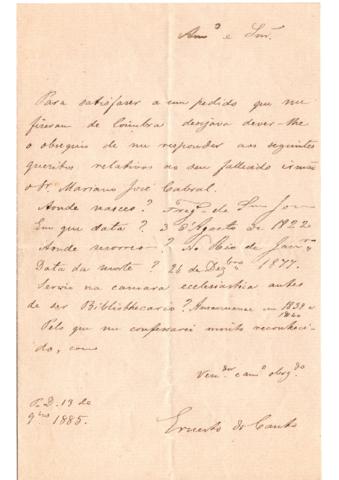 Amº e Snr.
Para satisfazer a um pedido que me
fizeram de Coimbra desejava dever-lhe
o obsequio de me responder aos seguintes
quesitos relativos ao seu fallecido irmão
o Sr. Mariano José Cabral.
Aonde nasceo? Fregª de São José
Em que data? 3 d'Agosto de 1822
Aonde morreo? No Rio de Janrº
Data da morte? 26 de Dezbro 1877.
Servio na camara ecclesiastica antes
de ser Bibliothecario? Amanuense em 1839 a
1840
Pelo que me confessarei muito reconheci-
do, como
Vendor camº obrgdo
P. D. 13 de
9bro 1885.
Ernesto do Canto